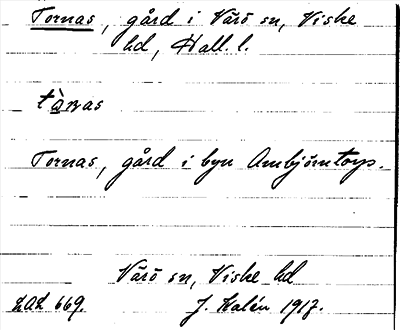 Tornas, gård i Värö sn, Viske
hd, Hall. l.
tà̱ṉas
Tornas, gård i byn Ambjörntorp.
Värö sn, Viske hd
LAL 669. J. Kalén 1917.